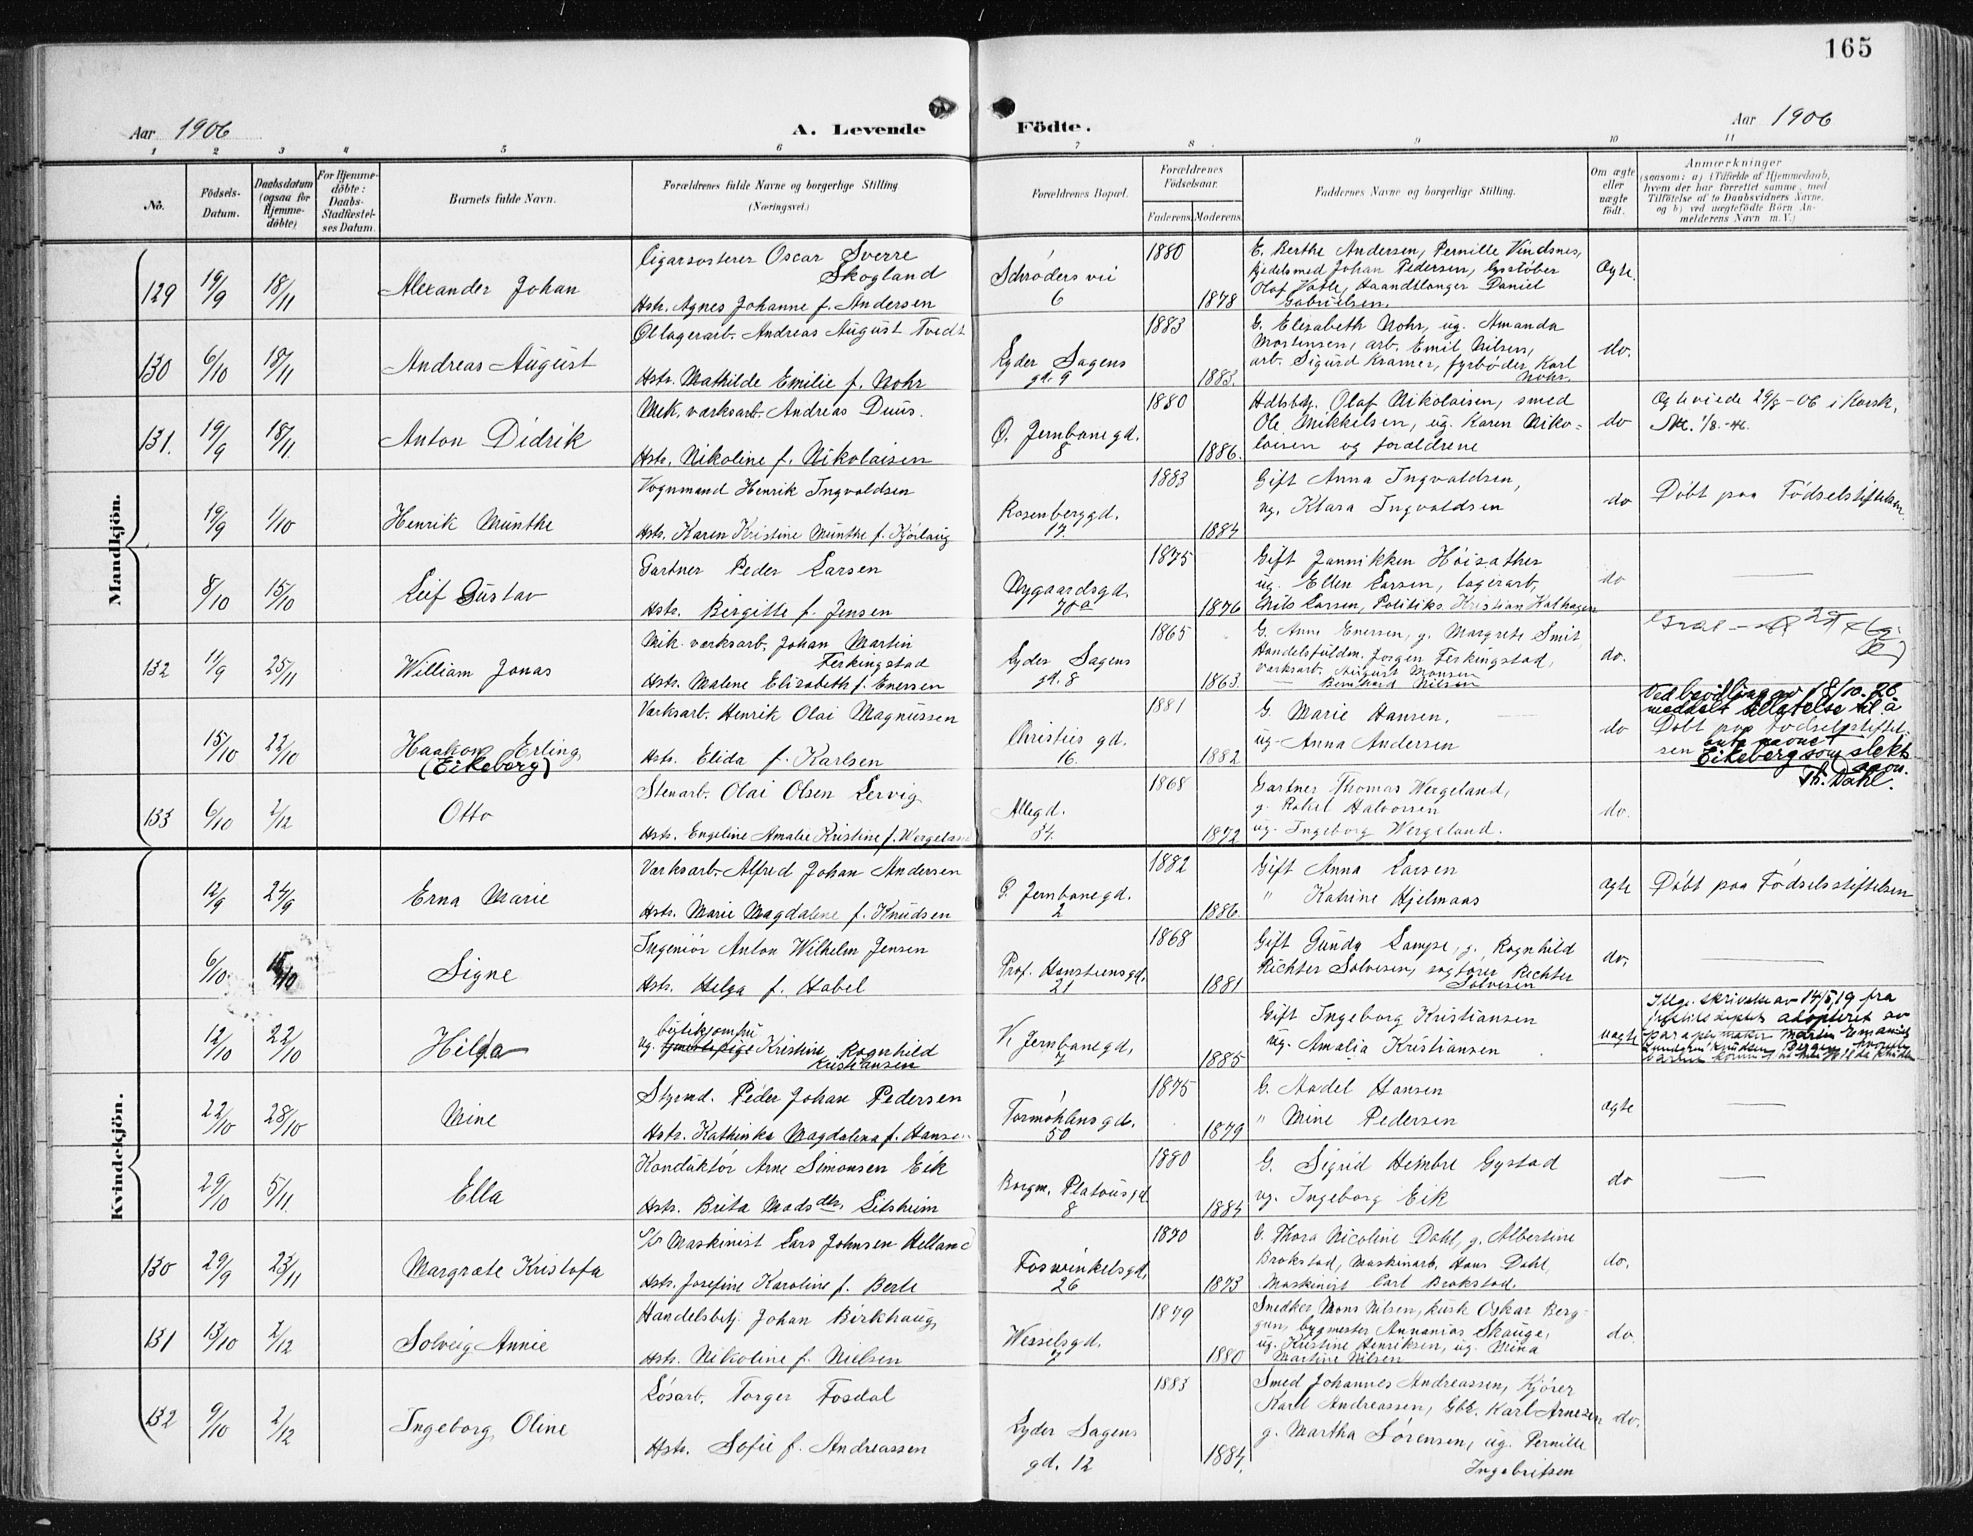 165
Aar 1906
A. Levende Födte.
Aar 1906
1 2 3 4 5 6 7 8 9 10 11
No.
Födsels-Datum.
Daabsdatum (ogsaa for Hjemme-döbte)
For Hjemme-döbte: Daabs-Stadfæstel-ses Datum.
Barnets fulde Navn.
Forældrenes fulde Navne og borgerlige Stilling
(Næringsvei.)
Forældrenes Bopæl.
Forældrenes Födselsaar.
Faderens. Moderens.
Faddernes Navne og borgerlige Stilling.
Om ægte eller uægte födt.
Anmærkninger
(saasom: a) i Tilfælde af Hjemmedaab,
hvem der har forrettet samme, med
Tilföielse af to Daabsvidners Navne,
og b) ved uægtefödte Börn An-
melderens Navn m. V.)
Mandkjön.
129 19/9 18/11 Alexander Johan
Cigarsorterer Oscar Sverre
Skogland
Hstr. Agnes Johanne f. Andersen
Schrøders vei
6
1880
1878
E. Berthe Andersen, Pernille Vindsnes,
Kjedelsmed Johan Pedersen,
Olaf Vatle, Haandlanger Daniel
Gabrielsen.
Ægte.
130 6/10 18/11 Andreas August
Øllagerarb. Andreas August Tvedt
Hstr. Mathilde Emilie f. Nohr
Lyder Sagens
gd. 9
1883
1883.
G. Elisabeth Nohr, ug. Amanda
Mortensen, arb. Emil Nilsen,
arb. Sigurd Kramer, fyrbøder Karl
Nohr.
do.
131. 19/9 18/11 Anton Didrik
Mek. værksarb. Andreas Duus.
Hstr. Nikoline f. Nikolaisen
Ø. Jernbanegd.
8
1880
1886.
Hdlsbtj. Olaf Nikolaisen, smed
Ole Mikkelsen, ug. Karen Niko=
laisen og forældrene
do
29/8-06 i
19/9 1/10 Henrik Munthe
Vognmand Henrik Ingvaldsen
Hstr. Karen Kristine Munthe f. Kjørlaug
Rosenberggd.
17.
1883
1884
Gift Anna Ingvaldsen,
ug. Klara Ingvaldsen
do
Døbt paa Fødselsstiftelsen.
8/10 15/10 Leif Gustav
Gartner Peder Larsen
Hstr. Birgitte f. Jensen
Nygaardsgd.
70a
1875
1876
Gift Jannikken Høisæther
ug. Ellen Larsen, lagerarb.
Nils Larsen, Politiks. Kristian Kalhagen
do
132 11/9 25/11 William Jonas
Mek. værksarb. Johan Martin
Ferkingstad
Hstr. Malene Elisabeth f. Enersen
Lyder Sagens
gd. 8
1865
1863.
G. Anne Enersen, g. Margrete Smit,
Handelsfuldm. Jørgen Ferkingstad,
værksarb. August Monsen
— Bernhard Nilsen
do.
15/10 22/10 Haakon Erling
(Eikeberg)
Værksarb. Henrik Olai Magnussen
Hstr. Elida f. Karlsen
Christies gd.
16.
1881
1882
G. Marie Hansen,
ug. Anna Andersen
do
Ved bevilling av 18/10.26
meddelt tillatelse til å
Døbt paa Fødselsstiftel
sen anta navnet
Eikeberg som slekts
navn.
Th. Dahl.
133 6/10 2/12 Otto
Stenarb. Olai Olsen Lervig
Hstr. Engeline Amalie Kristine f. Wergeland
Allegd.
34.
1868
1872
Gartner Thomas Wergeland,
g. Rakel Halvorsen
ug. Ingeborg Wergeland.
do.
Kvindekjön.
12/9 24/9 Erna Marie
Værksarb. Alfred Johan Andersen
Hstr. Marie Magdalene f. Knudsen
Ø. Jernbanegd.
2
1882
1886.
Gift Anna Larsen
" Katrine Hjelmaas
ægte
Døbt paa Fødselsstiftelsen
6/10 15/10 Signe
Ingeniør Anton Wilhelm Jensen
Hstr. Helga f. Habel
Prof. Hansteensgd.
21
1868
1881
Gift Gunda Lampe, g. Ragnhild
Richter Solvesen, sagfører Richter
Solvesen
do.
12/10 22/10 Hilda
ug. Kristine Ragnhild
Kristiansen
V. Jernbanegd.
7
1885
Gift Ingeborg Kristiansen
ug. Amalia Kristiansen
uægte
Iflg. skrivelse av 14/5 19 fra
adopteret av
Martin Emanuel
Knudsen Bergen, hvorefter
barnet
22/10 28/10 Mine
Styrmd. Peder Johan Pedersen
Hstr. Kathinka Magdalena f. Hansen
Tormøhlensgd.
50
1875
1879
G. Aadel Hansen
" Mine Pedersen
ægte
29/10 5/11. Ella
Konduktør Arne Simonsen Eik
Hstr. Brita Madsdtr. Lilsheim
Borgm. Platousgd.
8
1880
1884
G. Sigrid Heimbre Gystad
ug. Ingeborg Eik
do
130 29/9 23/11 Margræte Kristofa
Maskinist Lars Johnsen Helland
Hstr. Josefine Karoline f. Berle
Foswinkelsgd.
26
1870
1873
G. Thora Nicoline Dahl, g. Albertine
Brokstad, Maskinarb. Hans Dahl,
Maskinist Carl Brokstad.
do.
131 13/10 2/12 Solveig Annie
Handelsbtj. Johan Birkhaug,
Hstr. Nikoline f. Nielsen
Wesselsgd.
7
1879
1880
Snedker Mons Nilsen, kusk Oskar Berg-
gren, bygmester Annanias Skauge,
ug. Kristine Henriksen, ug. Mina
Martine Nilsen
do.
132 9/10 2/12 Ingeborg Oline
Løsarb. Torger Fosdal
Hstr. Sofie f. Andreassen
Lyder Sagens
gd. 12
1883
1884.
Smed Johannes Andreassen, Kjører
Karl Andreassen, Gbr. Karl Arnesen
g. Martha Sørensen, ug. Pernille
Ingebritsen
do.